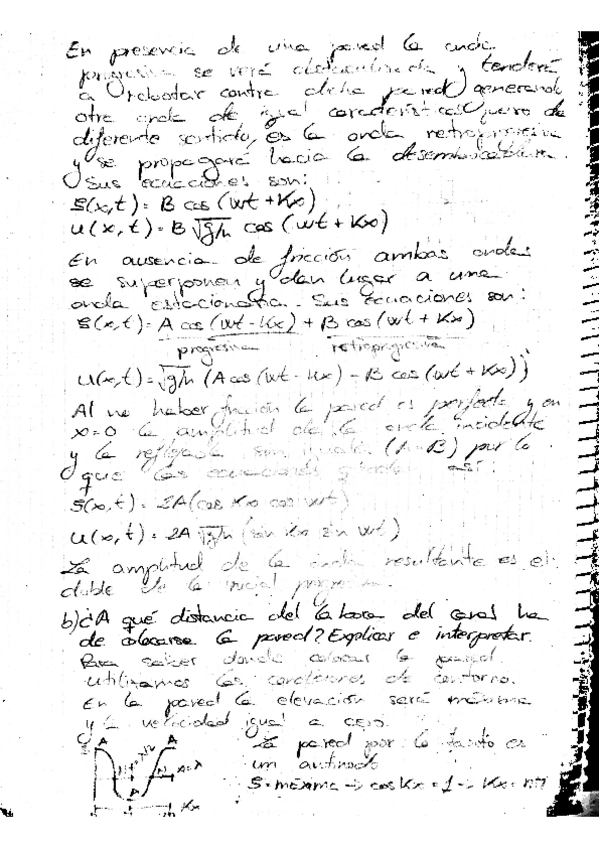 En presencia de una pared la onda
progresiva se verá distorsionada y tenderá
a rebotar contra dicha pared generando
otra onda de igual características pero de
diferente sentido, es la onda retroprogresiva
y se propagará hacia la desembocadura.
Sus ecuaciones son:
S(x,t) = B cos (wt + Kx)
u(x,t) = B √g/h cos (wt + Kx)
En ausencia de fricción ambas ondas
se superponen y dan lugar a una
onda estacionaria. Sus ecuaciones son:
S(x,t) = A cos (wt - Kx) + B cos (wt + Kx)
progresiva retroprogresiva
u(x,t) = √g/h (A cos (wt - Kx) - B cos (wt + Kx))
Al no haber fricción la pared es perfecta y en
x=0 la amplitud de la onda incidente
y la reflejada son iguales (A=B) por lo
que las ecuaciones quedan así:
S(x,t) = 2A (cos Kx cos wt)
u(x,t) = 2A √g/h (sin Kx sin wt)
La amplitud de la onda resultante es el
doble de la inicial progresiva.
b) ¿A qué distancia del la boca del canal ha
de colocarse la pared? Explicar e interpretar.
Para saber donde colocar la pared
utilizamos las condiciones de contorno.
En la pared la elevación será máxima
y la velocidad igual a cero.
La pared por lo tanto es
un antinodo
S = máxima → cos Kx = 1 → Kx = nπ
A A
N N x=λ
A
Kx